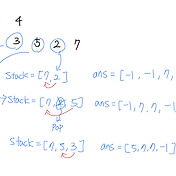 4
3 5 2 7
stack = [7, 2] ans = [-1, -1, 7,
→ stack = [7, 5] ans = [-1, 7, 7, -1
pop
stack = [7, 5, 3] ans = [5, 7, 7, -1]